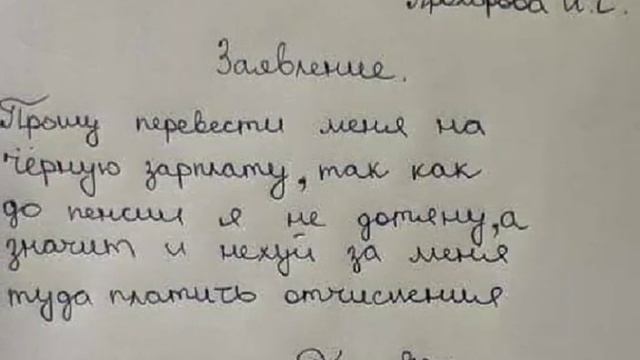 Прохорова И.С.
Заявление.
Прошу перевести меня на
чёрную зарплату, так как
до пенсии я не дотяну, а
значит и нехуй за меня
туда платить отчисления